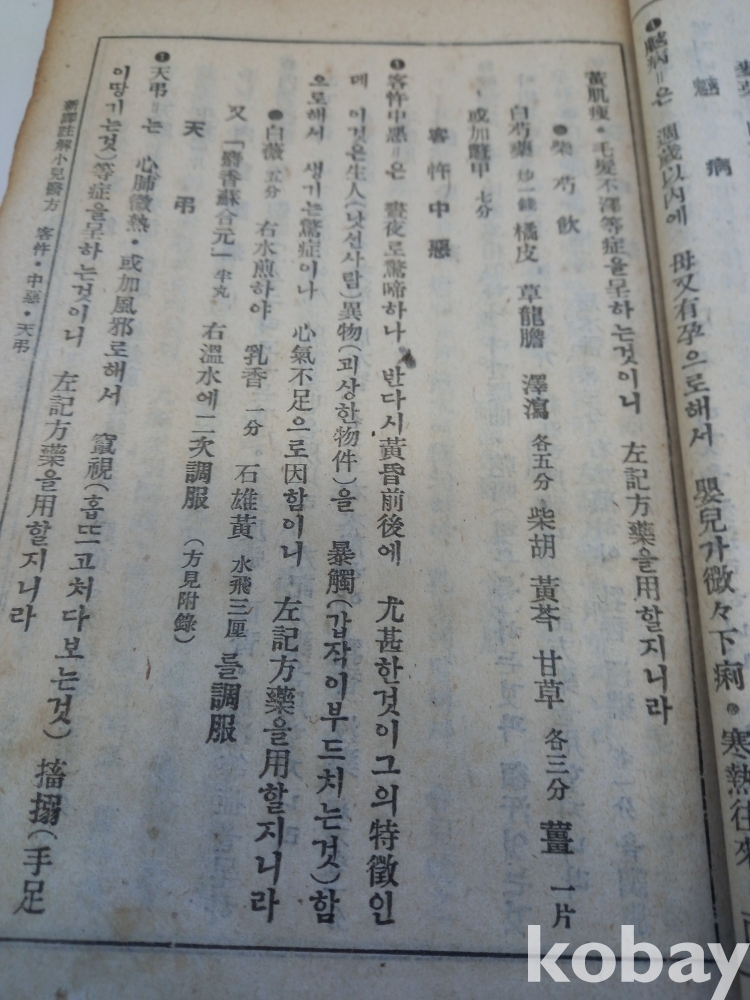 魃病
❶魃病=은 週歲以內에 母又有孕으로해서 嬰兒가 微々下痢·寒熱往來
黃肌瘦·毛髮不澤等症을呈하는것이니 左記方藥을用할지니라
●柴芍飮
白芍藥 炒一錢 橘皮 草龍膽 澤瀉 各五分 柴胡 黃芩 甘草 各三分 薑 一片
或加鼈甲 七分
客忤中惡
❶客忤中惡=은 晝夜로驚啼하나 반다시黃昏前後에 尤甚한것이그의特徵인
데 이것은生人(낫선사람)異物(괴상한物件)을 暴觸(갑작이부드치는것)함
으로해서 생기는驚症이나 心氣不足으로因함이니 左記方藥을用할지니라
●白薇 五分 右水煎하야 乳香 一分 石雄黃 水飛三厘 를調服
又「麝香蘇合元」半丸 右溫水에二次調服 (方見附錄)
天弔
❶天弔=는 心肺微熱·或加風邪로해서 竄視(홉뜨고처다보는것) 搐搦(手足
이땅기는것)等症을呈하는것이니 左記方藥을用할지니라
新譯註解小兒醫方 客忤·中惡·天弔
kobay